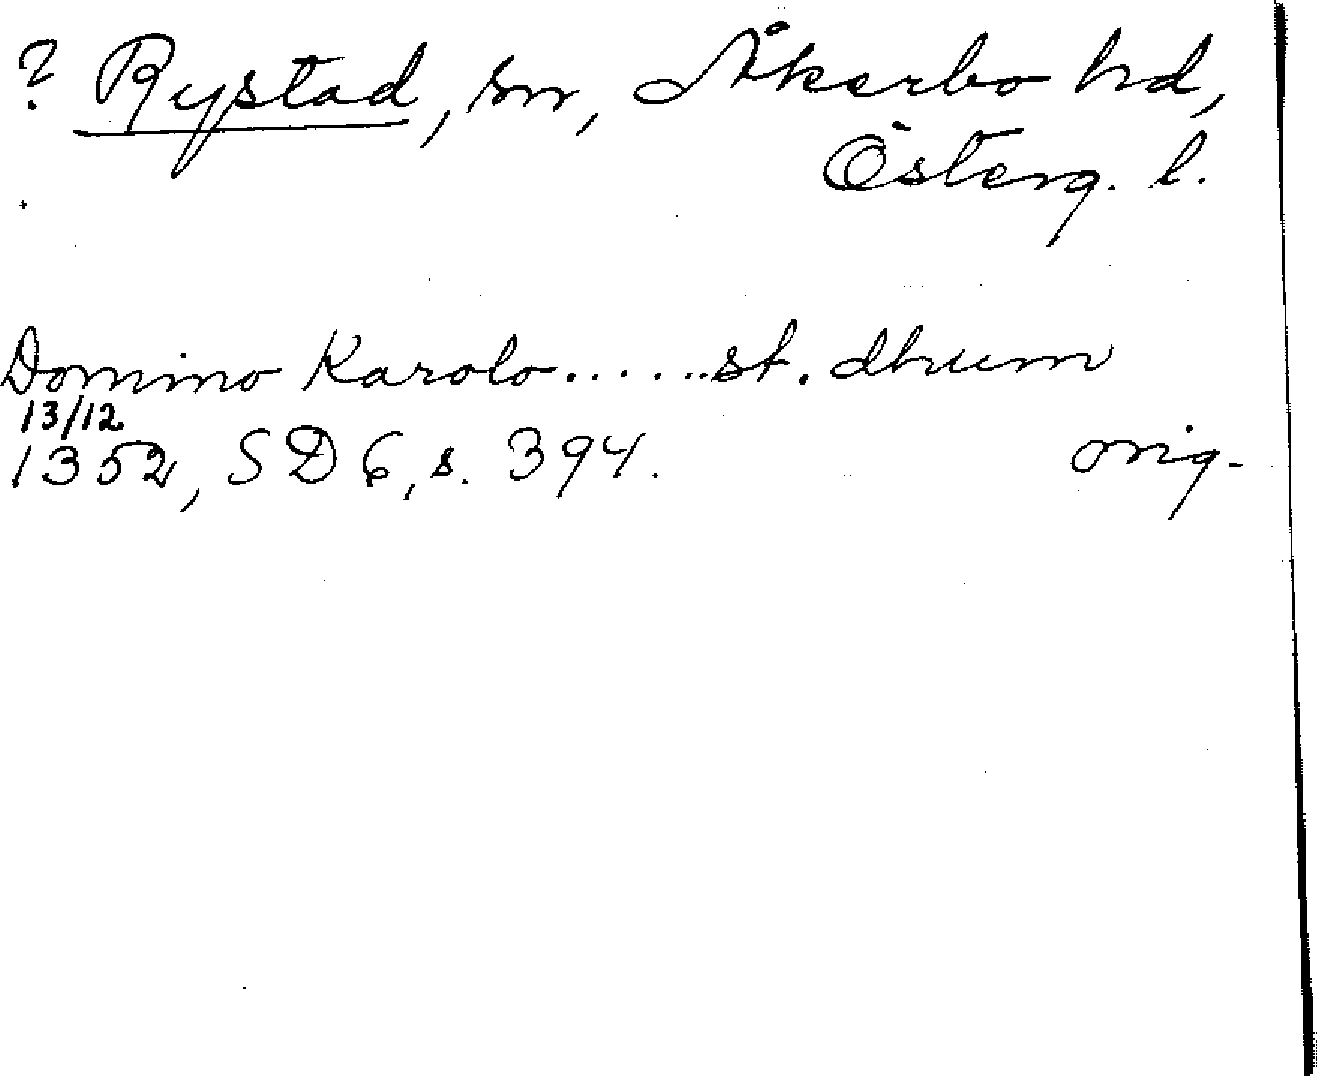 ? Rystad, sn, Åkerbo hd,
Österg. l.
Domino Karolo......st. dhrum
13/12
1352, SD 6, s. 394. orig.